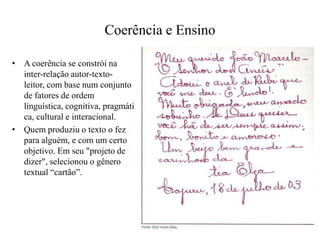 Coerência e Ensino
• A coerência se constrói na
inter-relação autor-texto-
leitor, com base num conjunto
de fatores de ordem
linguística, cognitiva, pragmáti
ca, cultural e interacional.
• Quem produziu o texto o fez
para alguém, e com um certo
objetivo. Em seu "projeto de
dizer", selecionou o gênero
textual “cartão”.
Meu querido João Marcelo-
"O senhor dos Anéis"
Adorei o anel de Rubi que
você me deu. É lindo!
Muito obrigada, meu amado
sobrinho. Se Deus quiser
você há de ser sempre assim,
bom, bonito, generoso.
Um beijo bem grande e
carinhoso da
tia Elza
18 de julho de 03